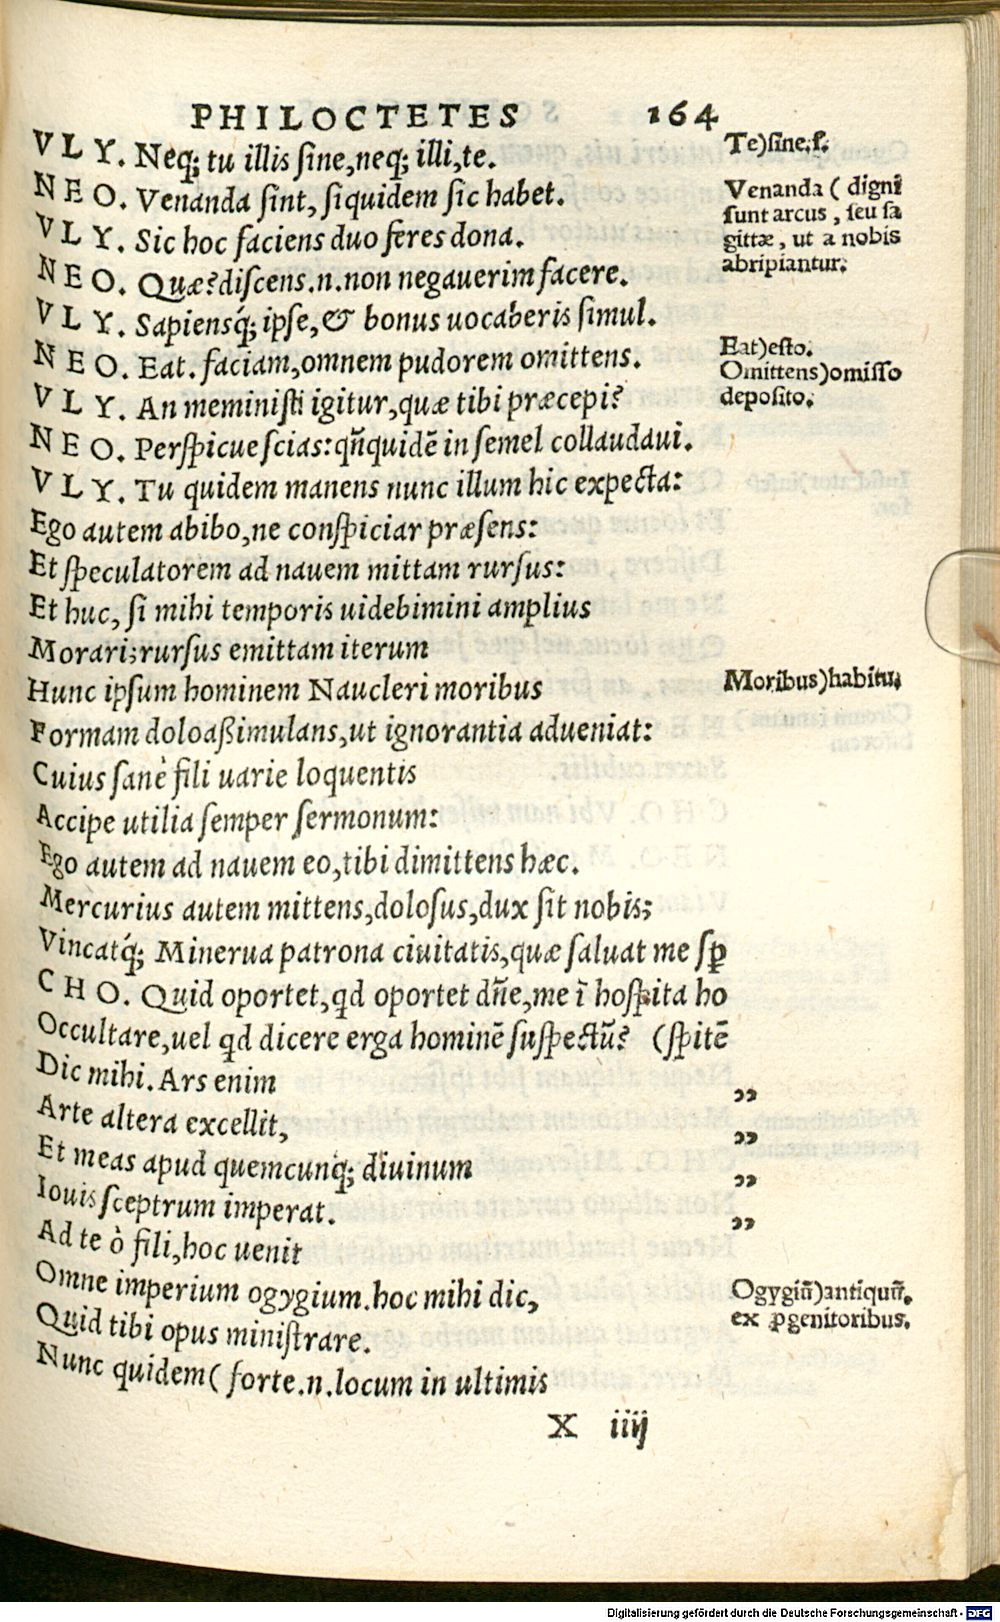 PHILOCTETES 164
VLY. Neq; tu illis ſine,neq; illi,te.
Te)ſine.ſ.
NEO. Venanda ſint, ſiquidem ſic habet.
Venanda ( digni
ſunt arcus, ſeu ſa
gittæ, ut a nobis
abripiantur.
VLY. Sic hoc faciens duo feres dona.
NEO. Quæ? diſcens.n.non negauerim facere.
VLY. Sapiensq́; ipſe,& bonus uocaberis ſimul.
NEO. Eat. faciam,omnem pudorem omittens.
Eat)eſto.
Omittens)omiſſo
depoſito.
VLY. An meminiſti igitur,quæ tibi præcepi?
NEO. Perſpicue ſcias: qñquidẽ in ſemel collaudaui.
VLY. Tu quidem manens nunc illum hic expecta:
Ego autem abibo,ne conſpiciar præſens:
Et ſpeculatorem ad nauem mittam rurſus:
Et huc, ſi mihi temporis uidebimini amplius
Morari;rurſus emittam iterum
Hunc ipſum hominem Naucleri moribus
Moribus)habitu
Formam doloaßimulans,ut ignorantia adueniat:
Cuius ſanè fili uarie loquentis
Accipe utilia ſemper ſermonum:
Ego autem ad nauem eo,tibi dimittens hæc.
Mercurius autem mittens,doloſus,dux ſit nobis;
Vincatq́; Minerua patrona ciuitatis,quæ ſaluat me ſꝑ
CHO. Quid oportet,qd oportet dñe,me ĩ hoſpita ho
Occultare,uel qd dicere erga hominẽ ſuſpectũ? (ſpitẽ
Dic mihi. Ars enim ,,
Arte altera excellit, ,,
Et meas apud quemcunq́; diuinum ,,
Iouis ſceptrum imperat. ,,
Ad te ò fili,hoc uenit
Omne imperium ogygium.hoc mihi dic,
Ogygiũ)antiquũ,
ex ꝓgenitoribus.
Quid tibi opus miniſtrare.
Nunc quidem( forte.n.locum in ultimis
X iiij
Digitalisierung gefördert durch die Deutsche Forschungsgemeinschaft - DFG